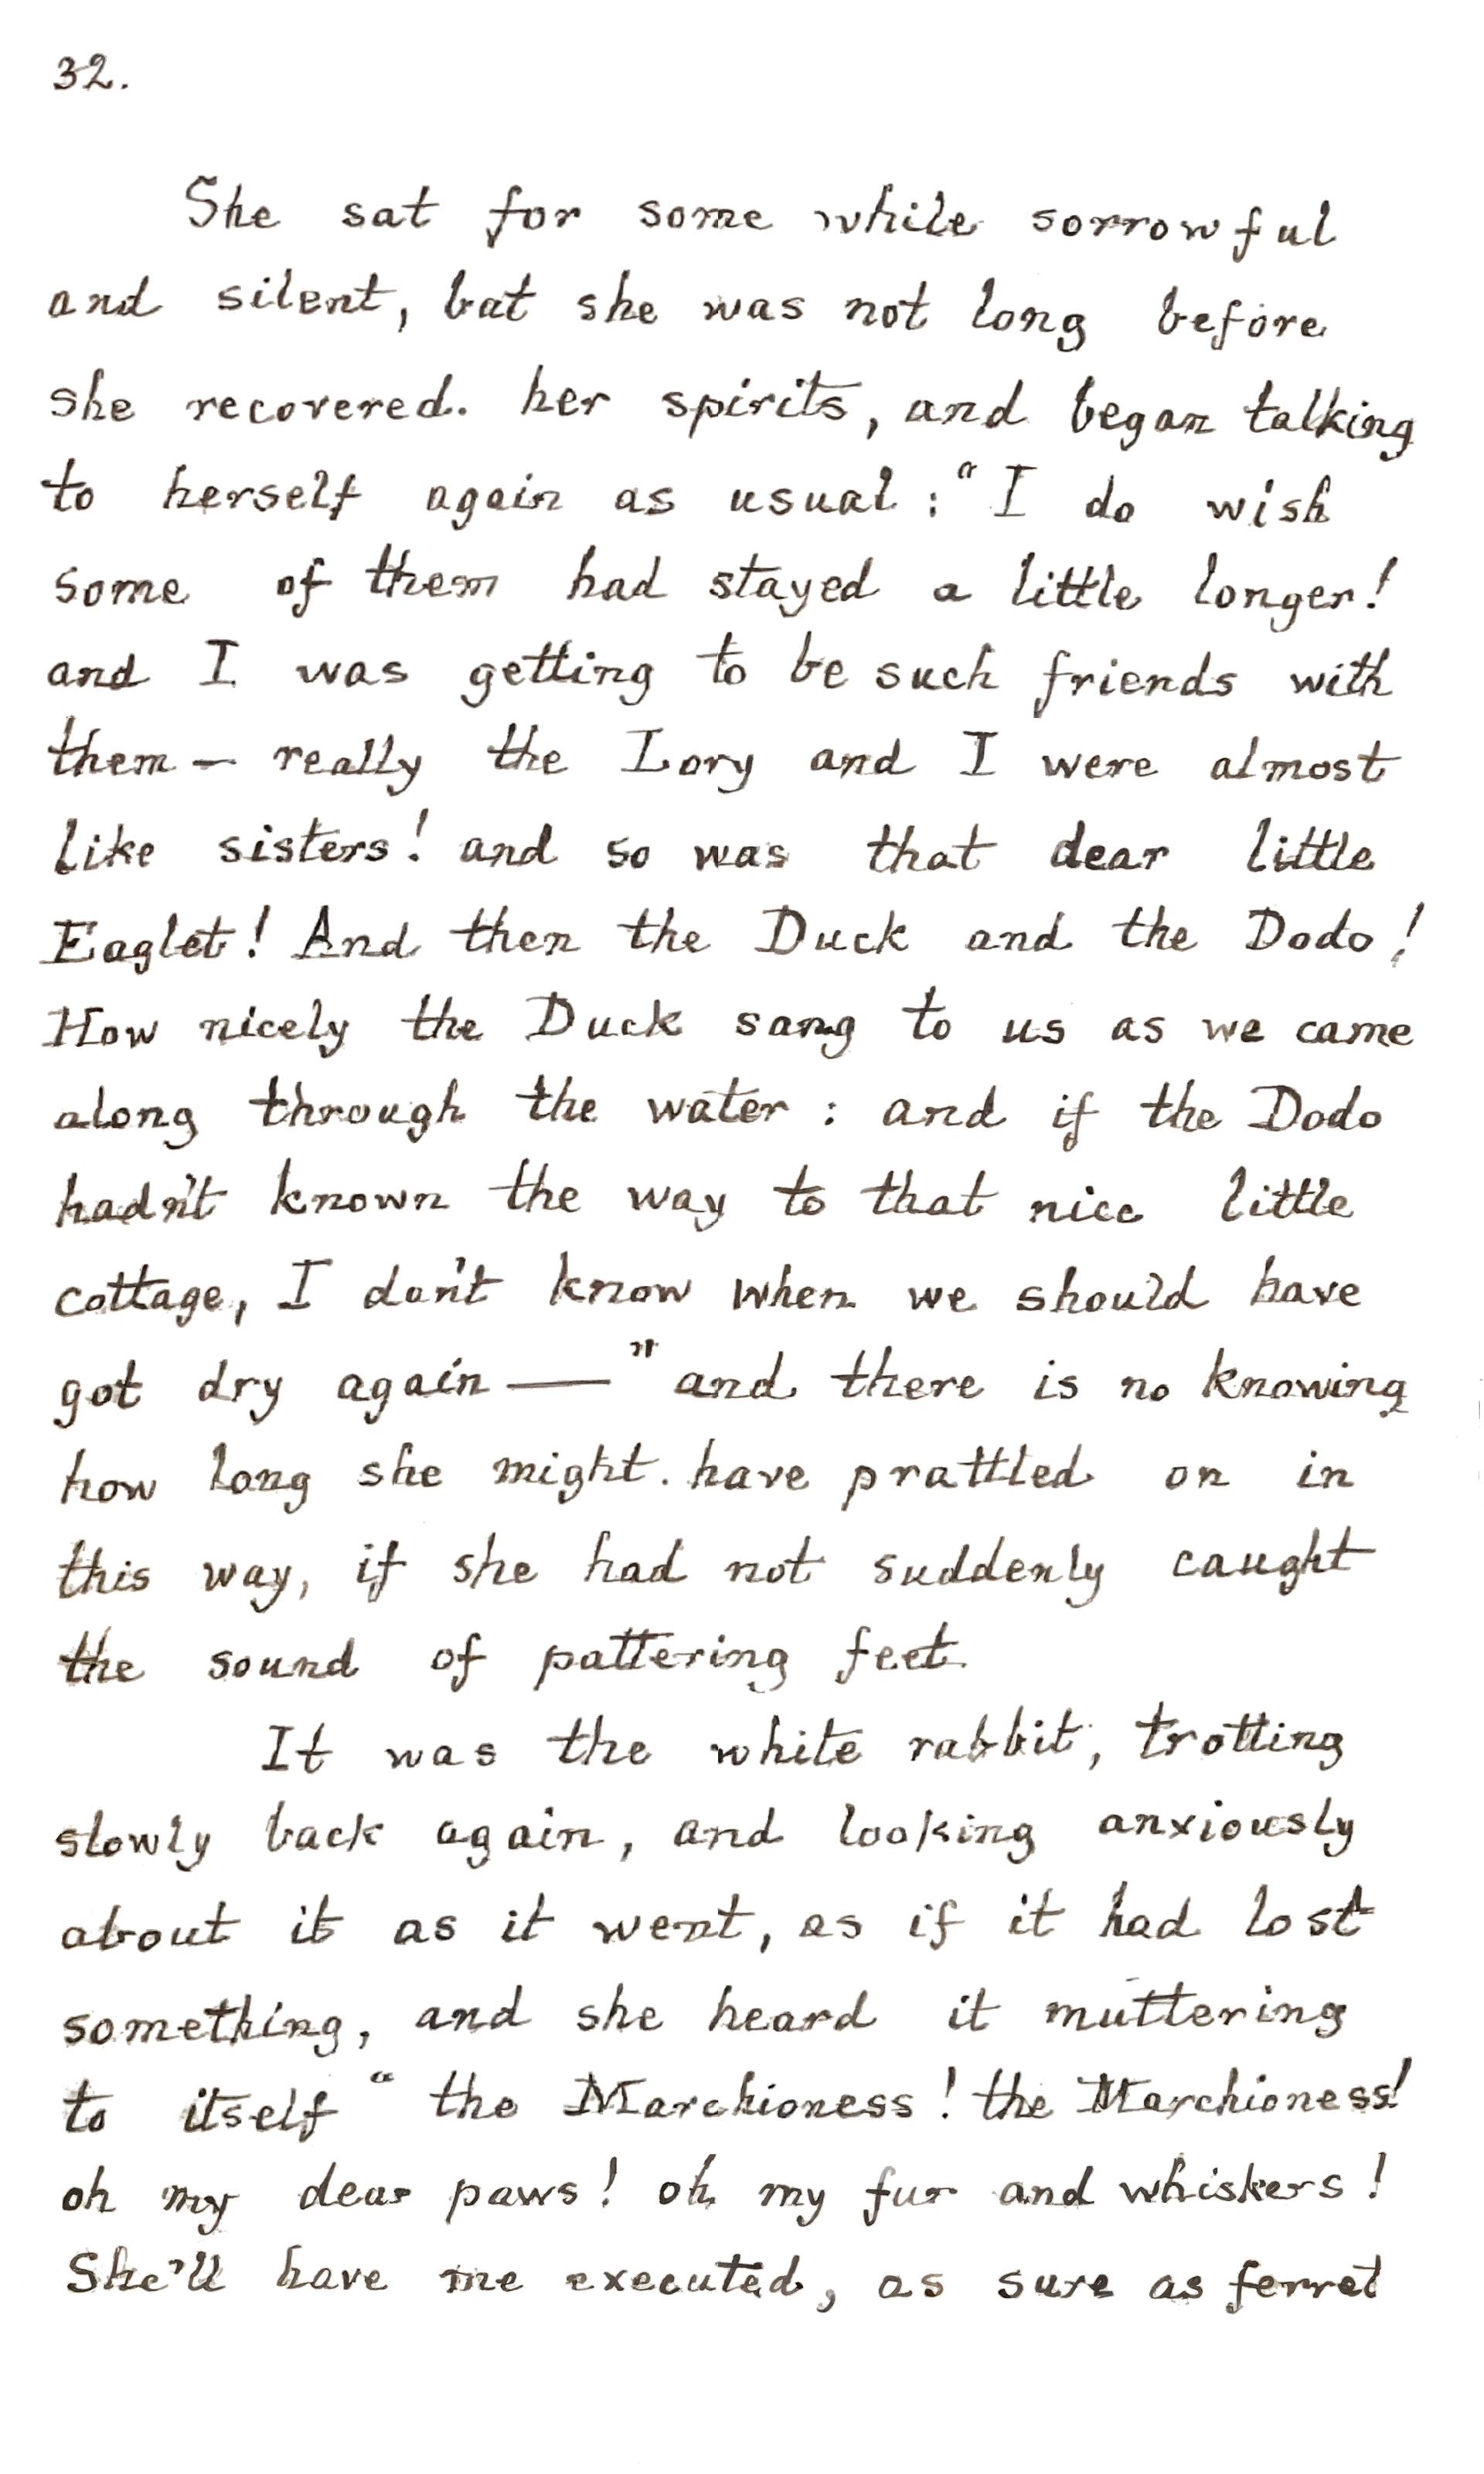 32.
She sat for some while sorrowful
and silent, but she was not long before
she recovered. her spirits, and began talking
to herself again as usual : "I do wish
some of them had stayed a little longer!
and I was getting to be such friends with
them — really the Lory and I were almost
like sisters! and so was that dear little
Eaglet! And then the Duck and the Dodo!
How nicely the Duck sang to us as we came
along through the water : and if the Dodo
hadn't known the way to that nice little
cottage, I don't know when we should have
got dry again —" and there is no knowing
how long she might. have prattled on in
this way, if she had not suddenly caught
the sound of pattering feet.
It was the white rabbit, trotting
slowly back again, and looking anxiously
about it as it went, as if it had lost
something, and she heard it muttering
to itself "the Marchioness! the Marchioness!
oh my dear paws! oh my fur and whiskers!
She'll have me executed, as sure as ferret